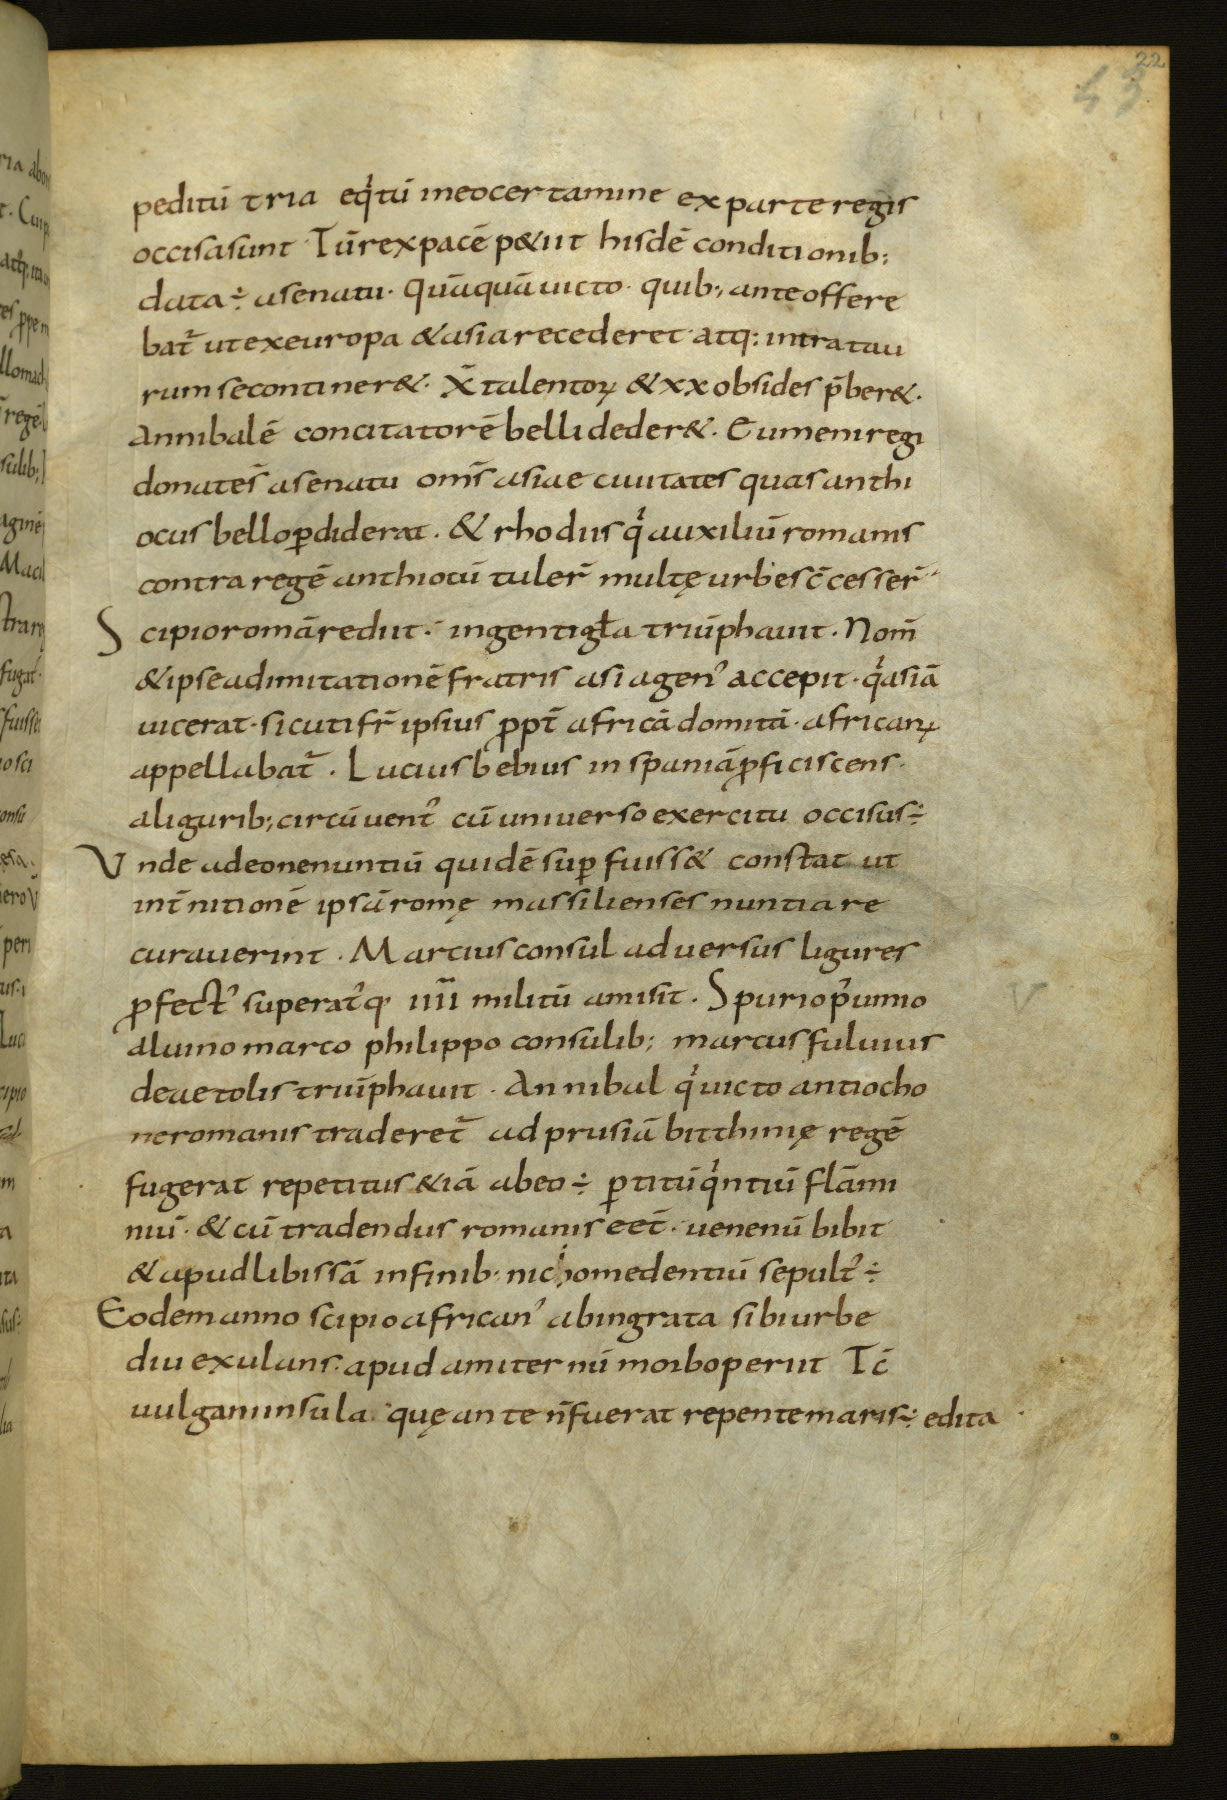 22
43
peditū tria eq̇tū ineocertamine exparteregis
occisasunt· Tūrexpacē p&iit hisdē conditionib;
data÷ asenatu· quāquāuicto· quib; anteoffere
bat̄ utexeuropa &asiarecederet· atq: intratau
rumsecontiner&· X̄ talentoꝝ &xxobsides p̄ber&·
Annibalē concitatorē bellideder&· Eumeniregi
donatēs asenatu om̄s asiae ciuitates quasanthi
ocus belloꝑdiderat· & rhodiis q̇ auxiliū romanis
contraregē anthiocū tuler̄ multęurbesc̄cesser̄
Scipioromārediit· ingentigł̄a triūphauit· Nom̄
&ipseadimitationē fratris asiagen᾿ accepit· q̇asiā
uicerat· sicutifr̄ ipsius ꝓpt̄ africā domitā· africanꝝ
appellabat̄· Luciusbebius inspaniāꝓficiscens·
aligurib; circūuent᾿ cū uniuerso exercitu occisus÷
Vnde adeonenuntiū quidē suꝑfuiss& constat ut
int̄nitionē ipsāromę massilienses nuntiare
curauerint· Marciusconsul aduersus ligures
ꝓfect᾿ superat᾿q· iiii militū amisit· Spuriop᾿umio
aluinomarco philippo consulib; marcusfuluius
deaetolistriūphauit· Annibal q̇uicto antiocho
neromanis traderet̄ adprusiā bitthinię regē
fugerat repetitus &iā abeo÷ ꝑtitūq̇ntiū flāmi
niū· &cū tradendus romaniseet̄· uenenū bibit
&apudlibissā infinib· nichomedentiū sepult᾿÷
Eodemanno scipioafrican᾿ abingrata sibiurbe
diuexulans· apudamiternū morboperiit Tc̄
uulganiinsula quęante n̄fuerat repentemaris÷ edita
V